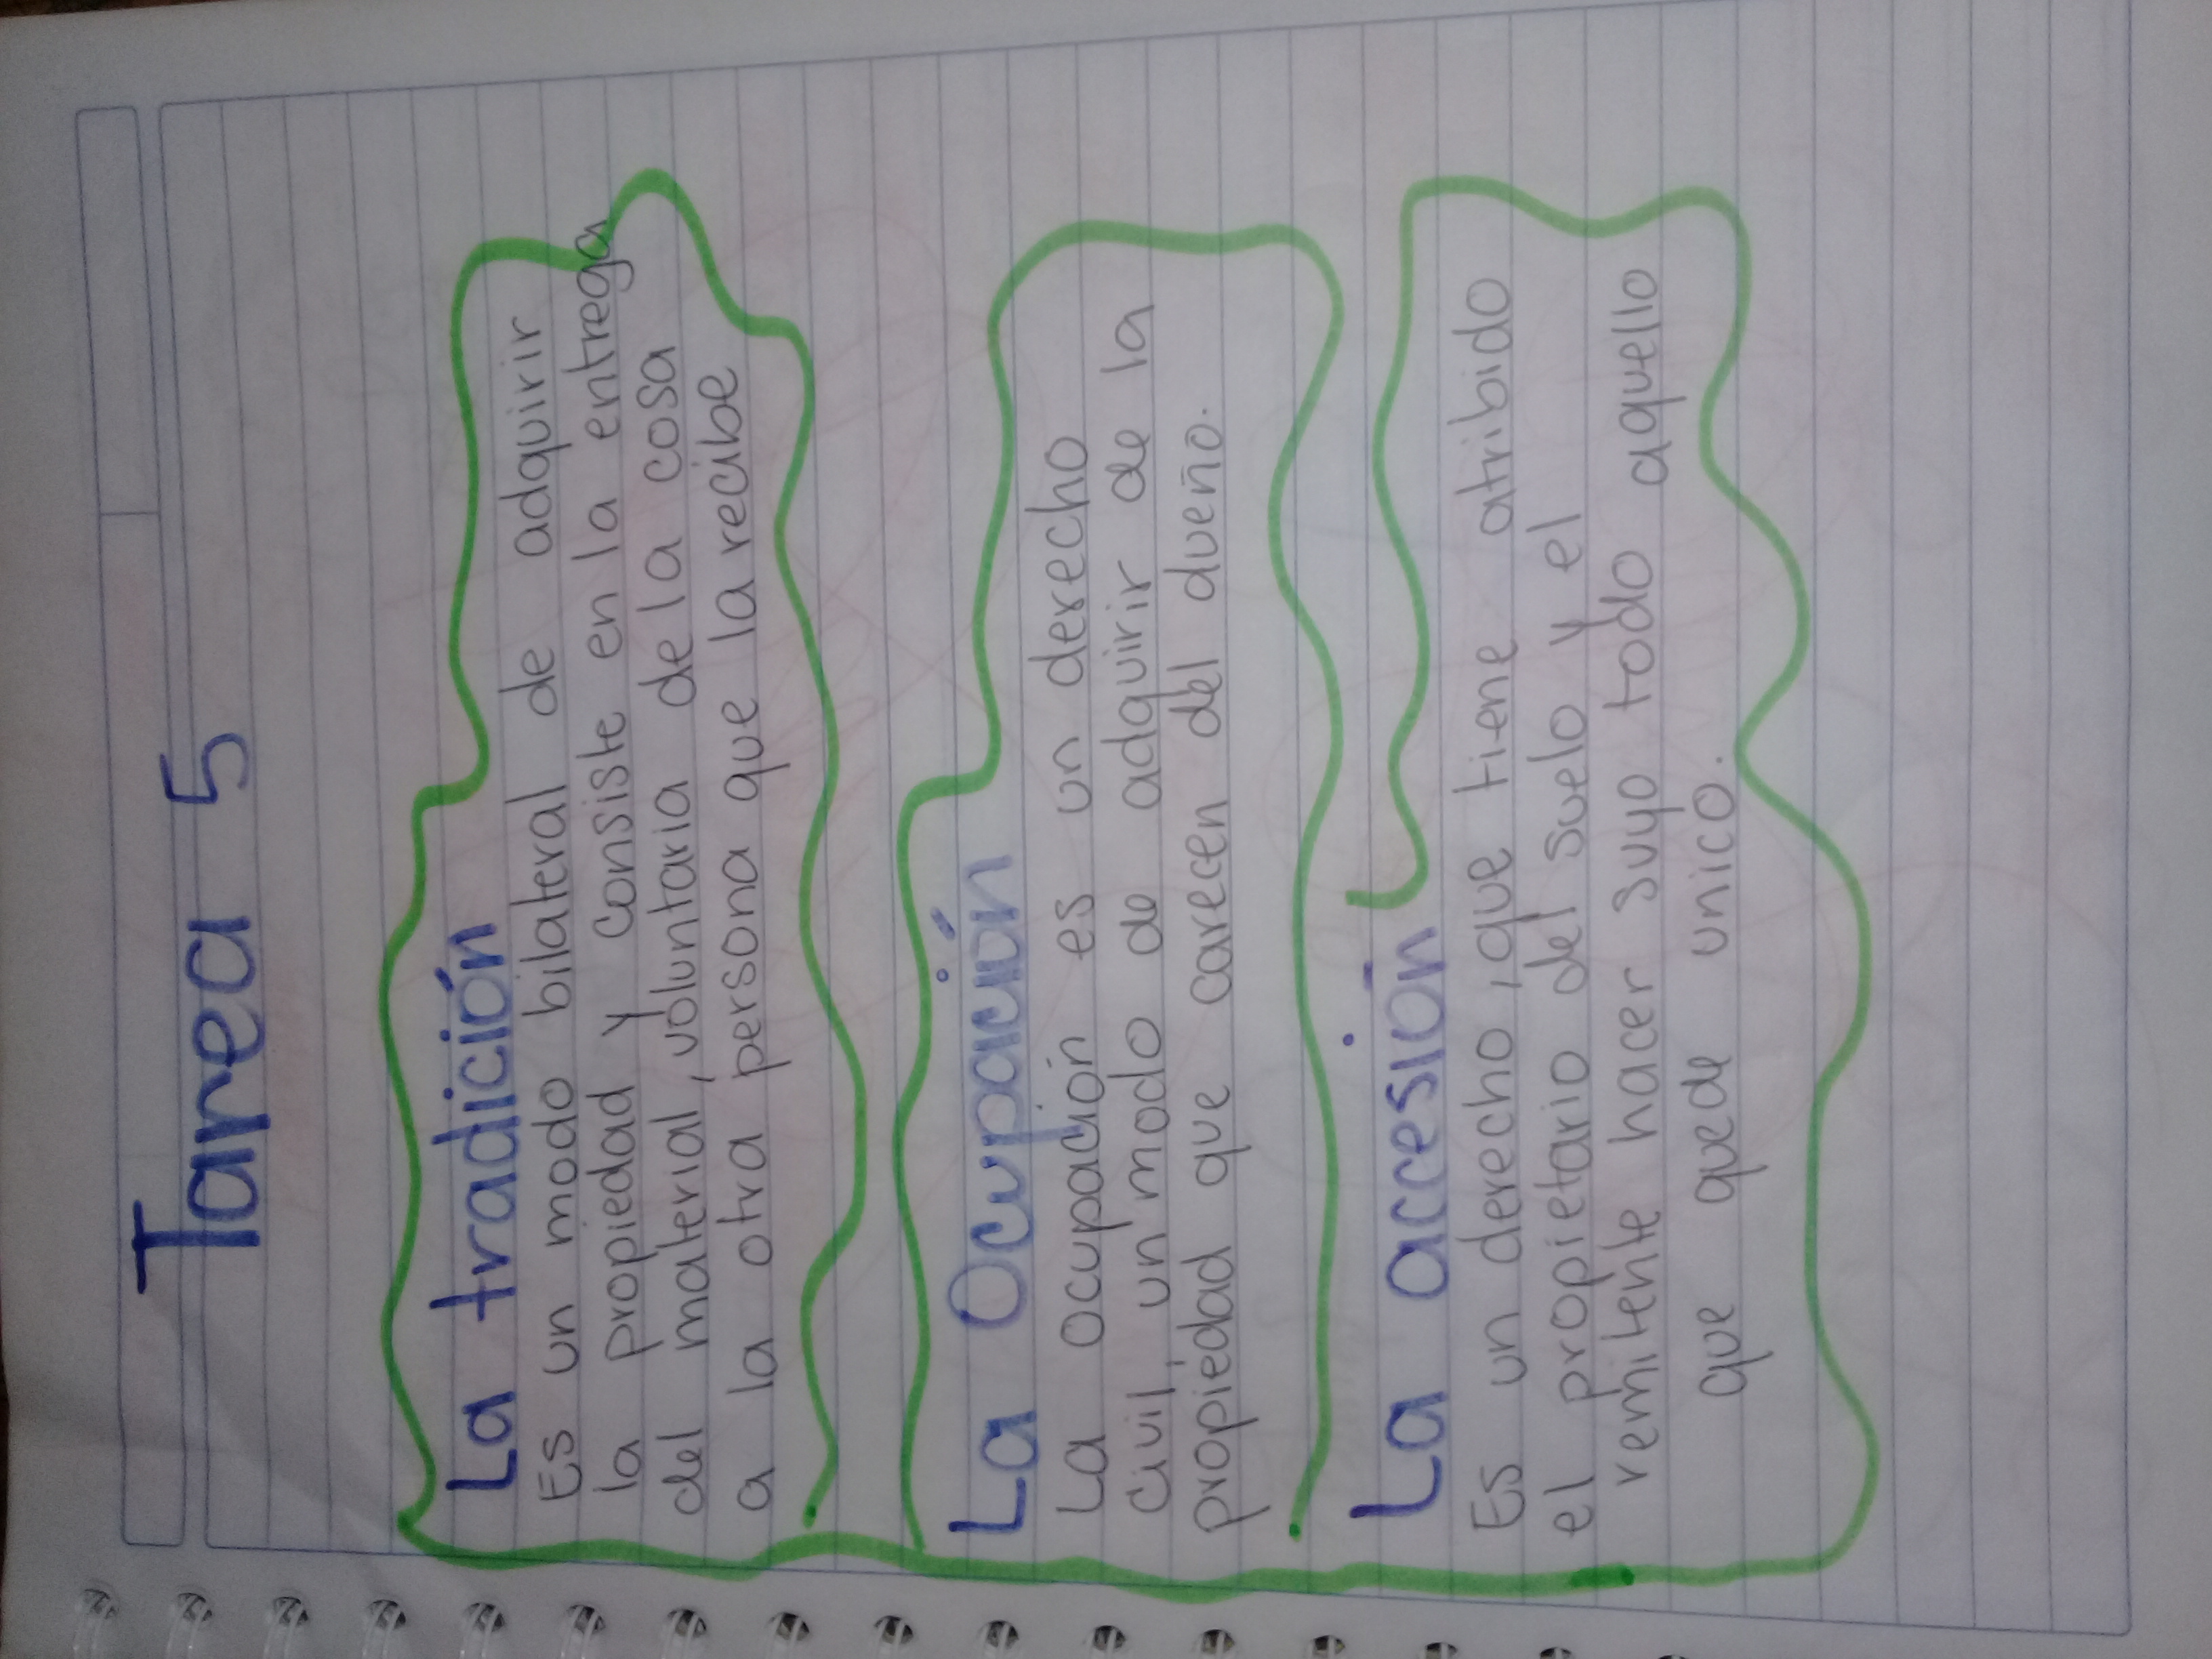 Tarea 5
La tradición
Es un modo bilateral de adquirir
la propiedad y consiste en la entrega
del material, voluntaria de la cosa
a la otra persona que la recibe
La Ocupación
La ocupación es un derecho
Civil, un modo de adquirir de la
propiedad que carecen del dueño.
La accesión
Es un derecho, que tiene atribido
el propietario del suelo y el
remitente hacer suyo todo aquello
que quede unico.